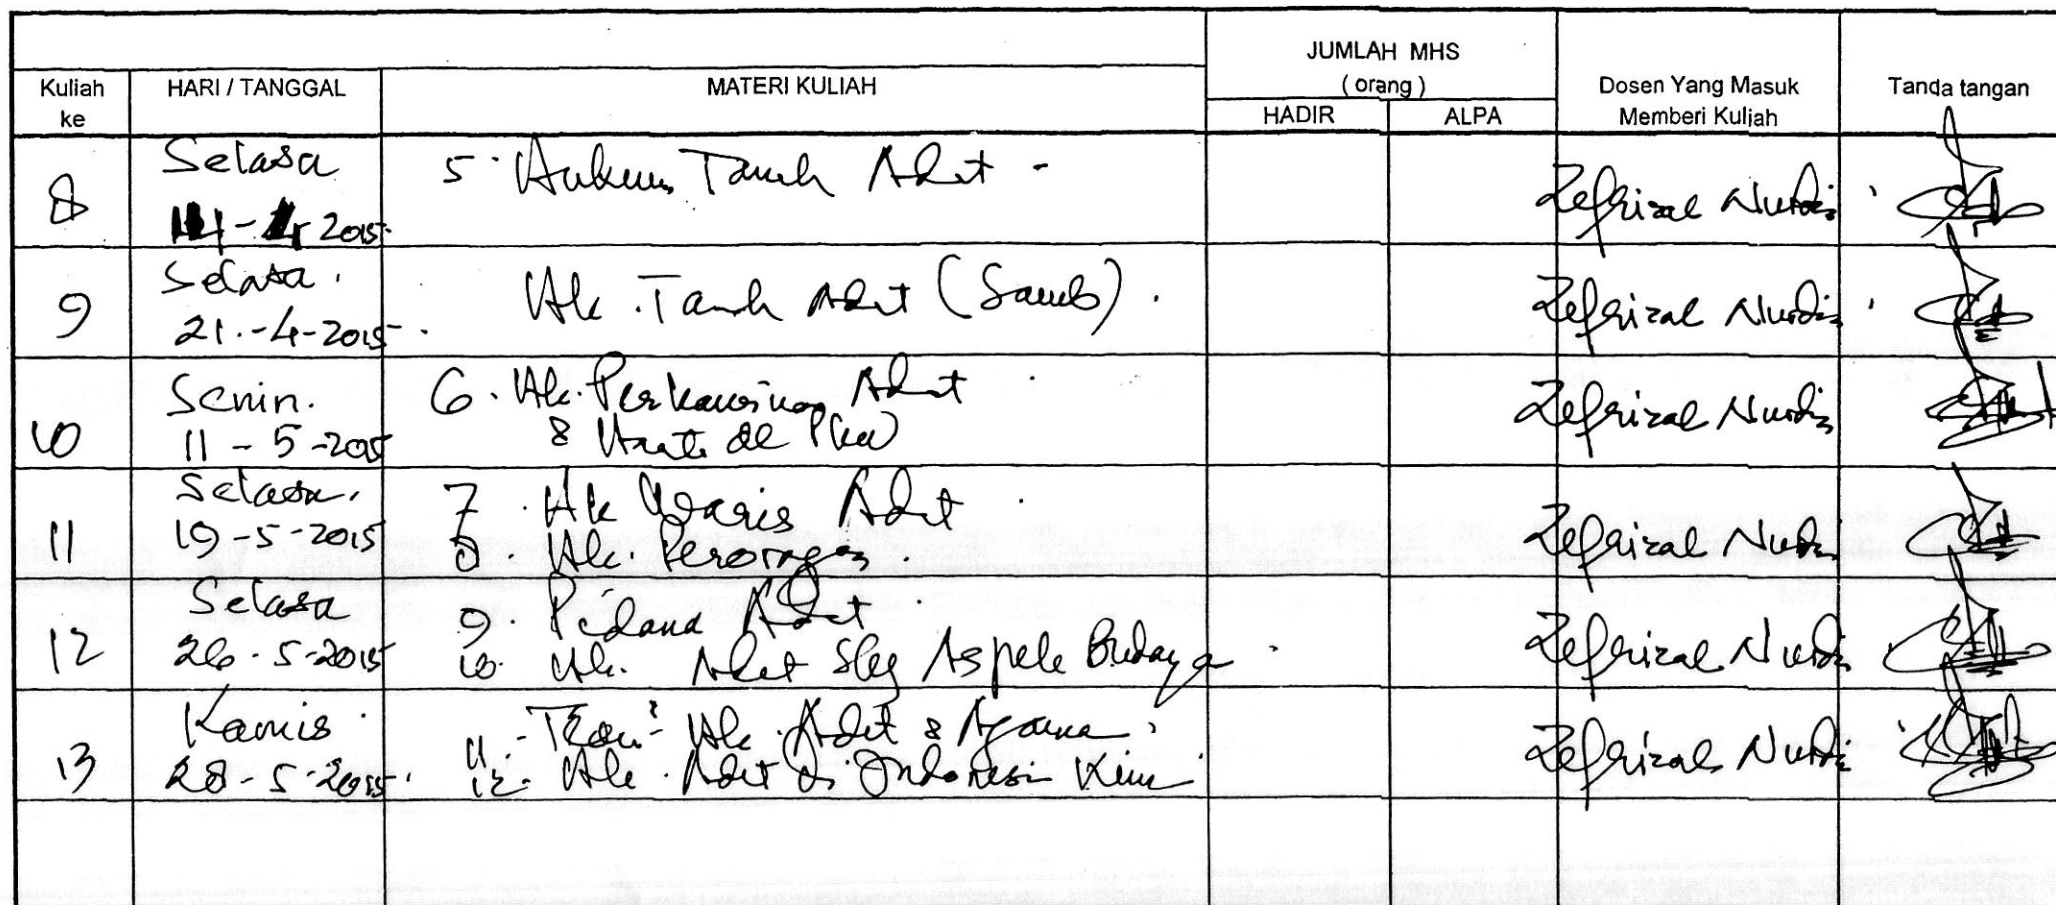 JUMLAH MHS
( orang )
Kuliah ke
HARI / TANGGAL
MATERI KULIAH
HADIR
ALPA
Dosen Yang Masuk
Memberi Kuliah
Tanda tangan
8
Selasa
14-4-2015
5. Hukum Tanah Adat -
Zefrizal Nurdin
9
Selasa.
21.-4-2015
Hk. Tanah Adat (Samb).
Zefrizal Nurdin
10
Senin.
11-5-2015
6. Hk. Perkawinan Adat
& Harta
Zefrizal Nurdin
11
Selasa.
19-5-2015
7. Hk Waris Adat
8. Hk. Perorangan
Zefrizal Nurdin
12
Selasa
26-5-2015
9. Pidana Adat
10. Hk. Adat Sbg Aspek Budaya
Zefrizal Nurdin
13
Kamis
28-5-2015
11. Teori² Hk. Adat & Agama
12. Hk. Adat di Indonesia Kini
Zefrizal Nurdin